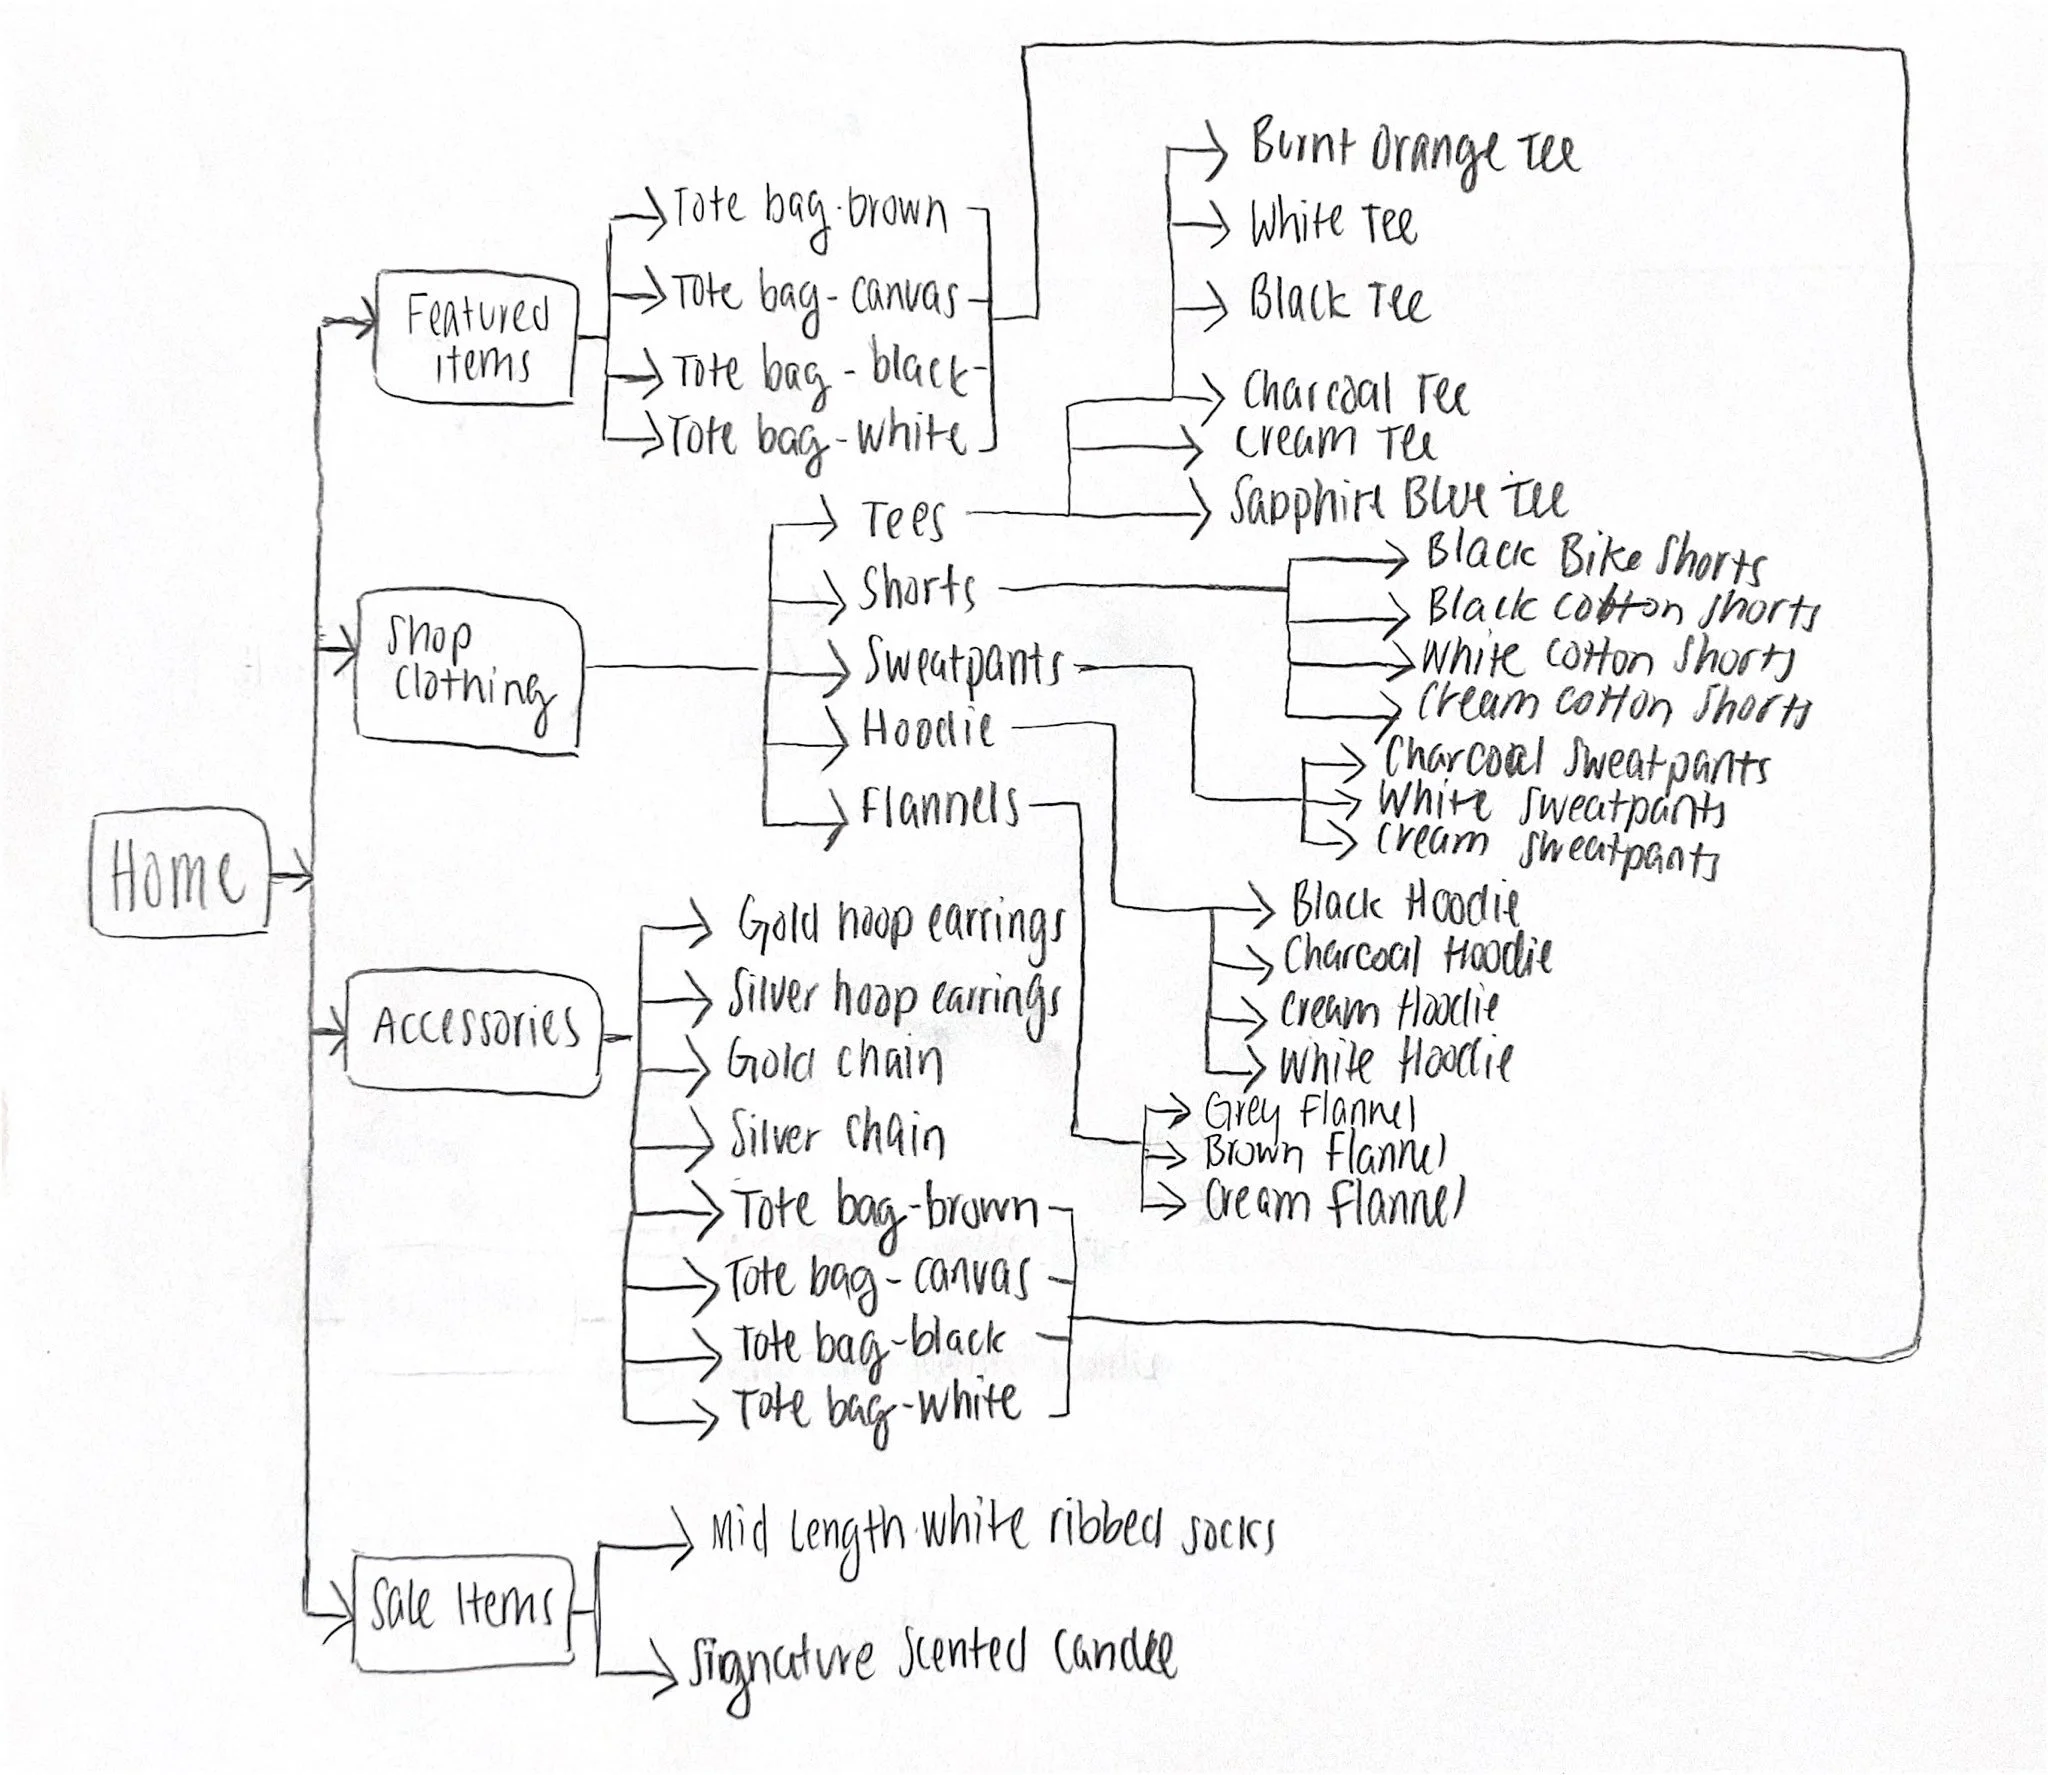 Home
Featured
items
Tote bag-brown
Tote bag-canvas
Tote bag-black
Tote bag-white
Shop
Clothing
Tees
Burnt Orange Tee
White Tee
Black Tee
Charcoal Tee
Cream Tee
Sapphire Blue Tee
Shorts
Black Bike Shorts
Black cotton shorts
White cotton shorts
Cream cotton shorts
Sweatpants
Charcoal Sweatpants
White Sweatpants
Cream Sweatpants
Hoodie
Black Hoodie
Charcoal Hoodie
Cream Hoodie
White Hoodie
Flannels
Grey Flannel
Brown Flannel
Cream Flannel
Accessories
Gold hoop earrings
Silver hoop earrings
Gold chain
Silver chain
Tote bag-brown
Tote bag-canvas
Tote bag-black
Tote bag-white
Sale Items
Mid Length white ribbed socks
Signature Scented Candle